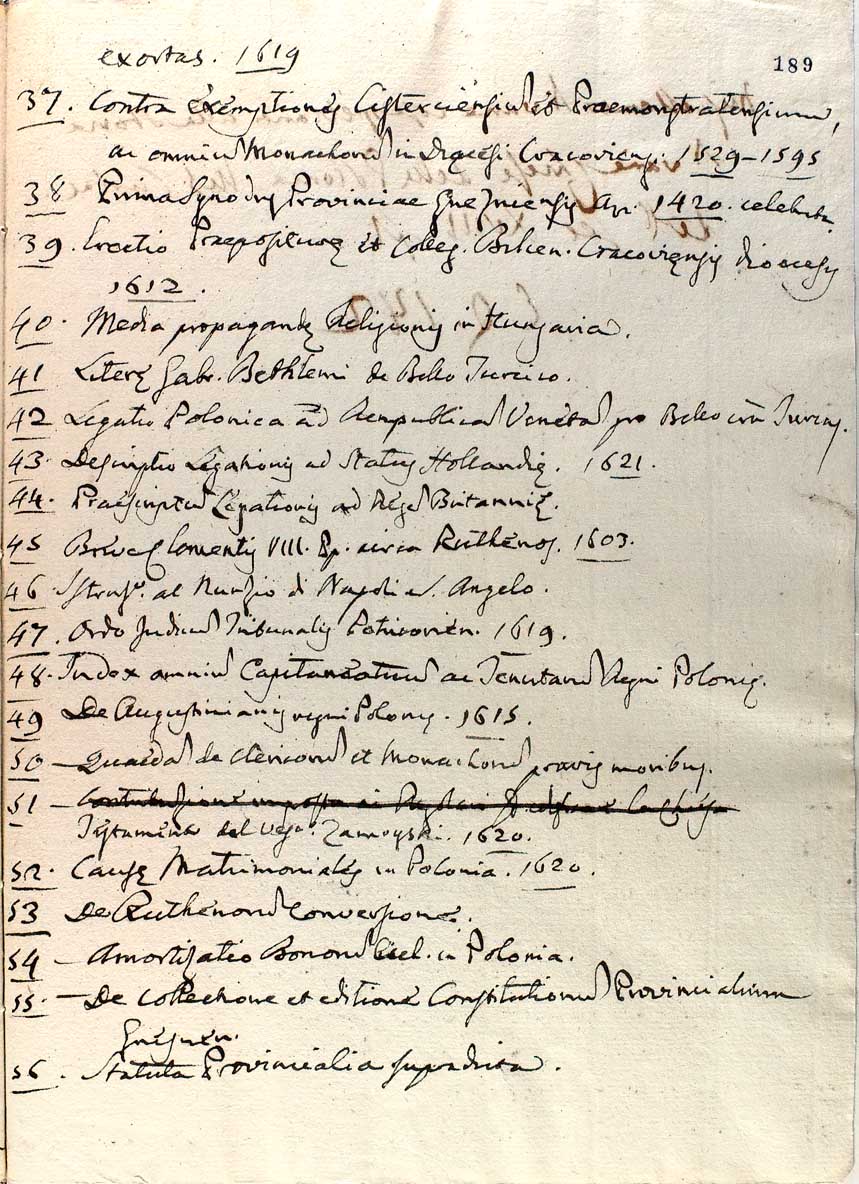 exortas. 1619
189
37. Contra exemptiones Cisterciensiu et Praemonstratensium,
ac omniu Monachoru in Diocesi Cracoviensi. 1529-1595
38 Prima Synodus Provinciae Gnesnensis 1420. celebrata.
39. Erectio Praepositurę et Colleg. Cracoviensis dioecesis
1612.
40. Media propagandę Religionis in Hungaria.
41 Literę Gabr. Bethlemi de Bello Turcico.
42 Legatio Polonica ad Rempublica Veneta pro Bello
43. Descriptio Legationis ad Status Hollandię. 1621.
44. Praescriptu Legationis ad Rege Britannię.
45 Breve Clementis VIII. Pp. circa Ruthenos. 1603.
46 al Nunzio di Napoli Angelo.
47. Ordo Judicii Tribunalis Petricovien. 1619.
48. Index omniu Capitaneatuu ac Tenutaru Regni Polonię.
49 De Augustinianis regni Polonię. 1615.
50 - Quaeda de Clericoru et Monachoru pravis moribus.
51 -
Testamento del Zamoyski. 1620.
52. Causę Matrimoniales in Polonia. 1620.
53 De Ruthenoru Conversione.
54 - Amortizatio Bonoru in Polonia.
55. - De Collectione et editione Constitutionu Provincialium
Gnesnen.
56. Statuta Provincialia supradicta.